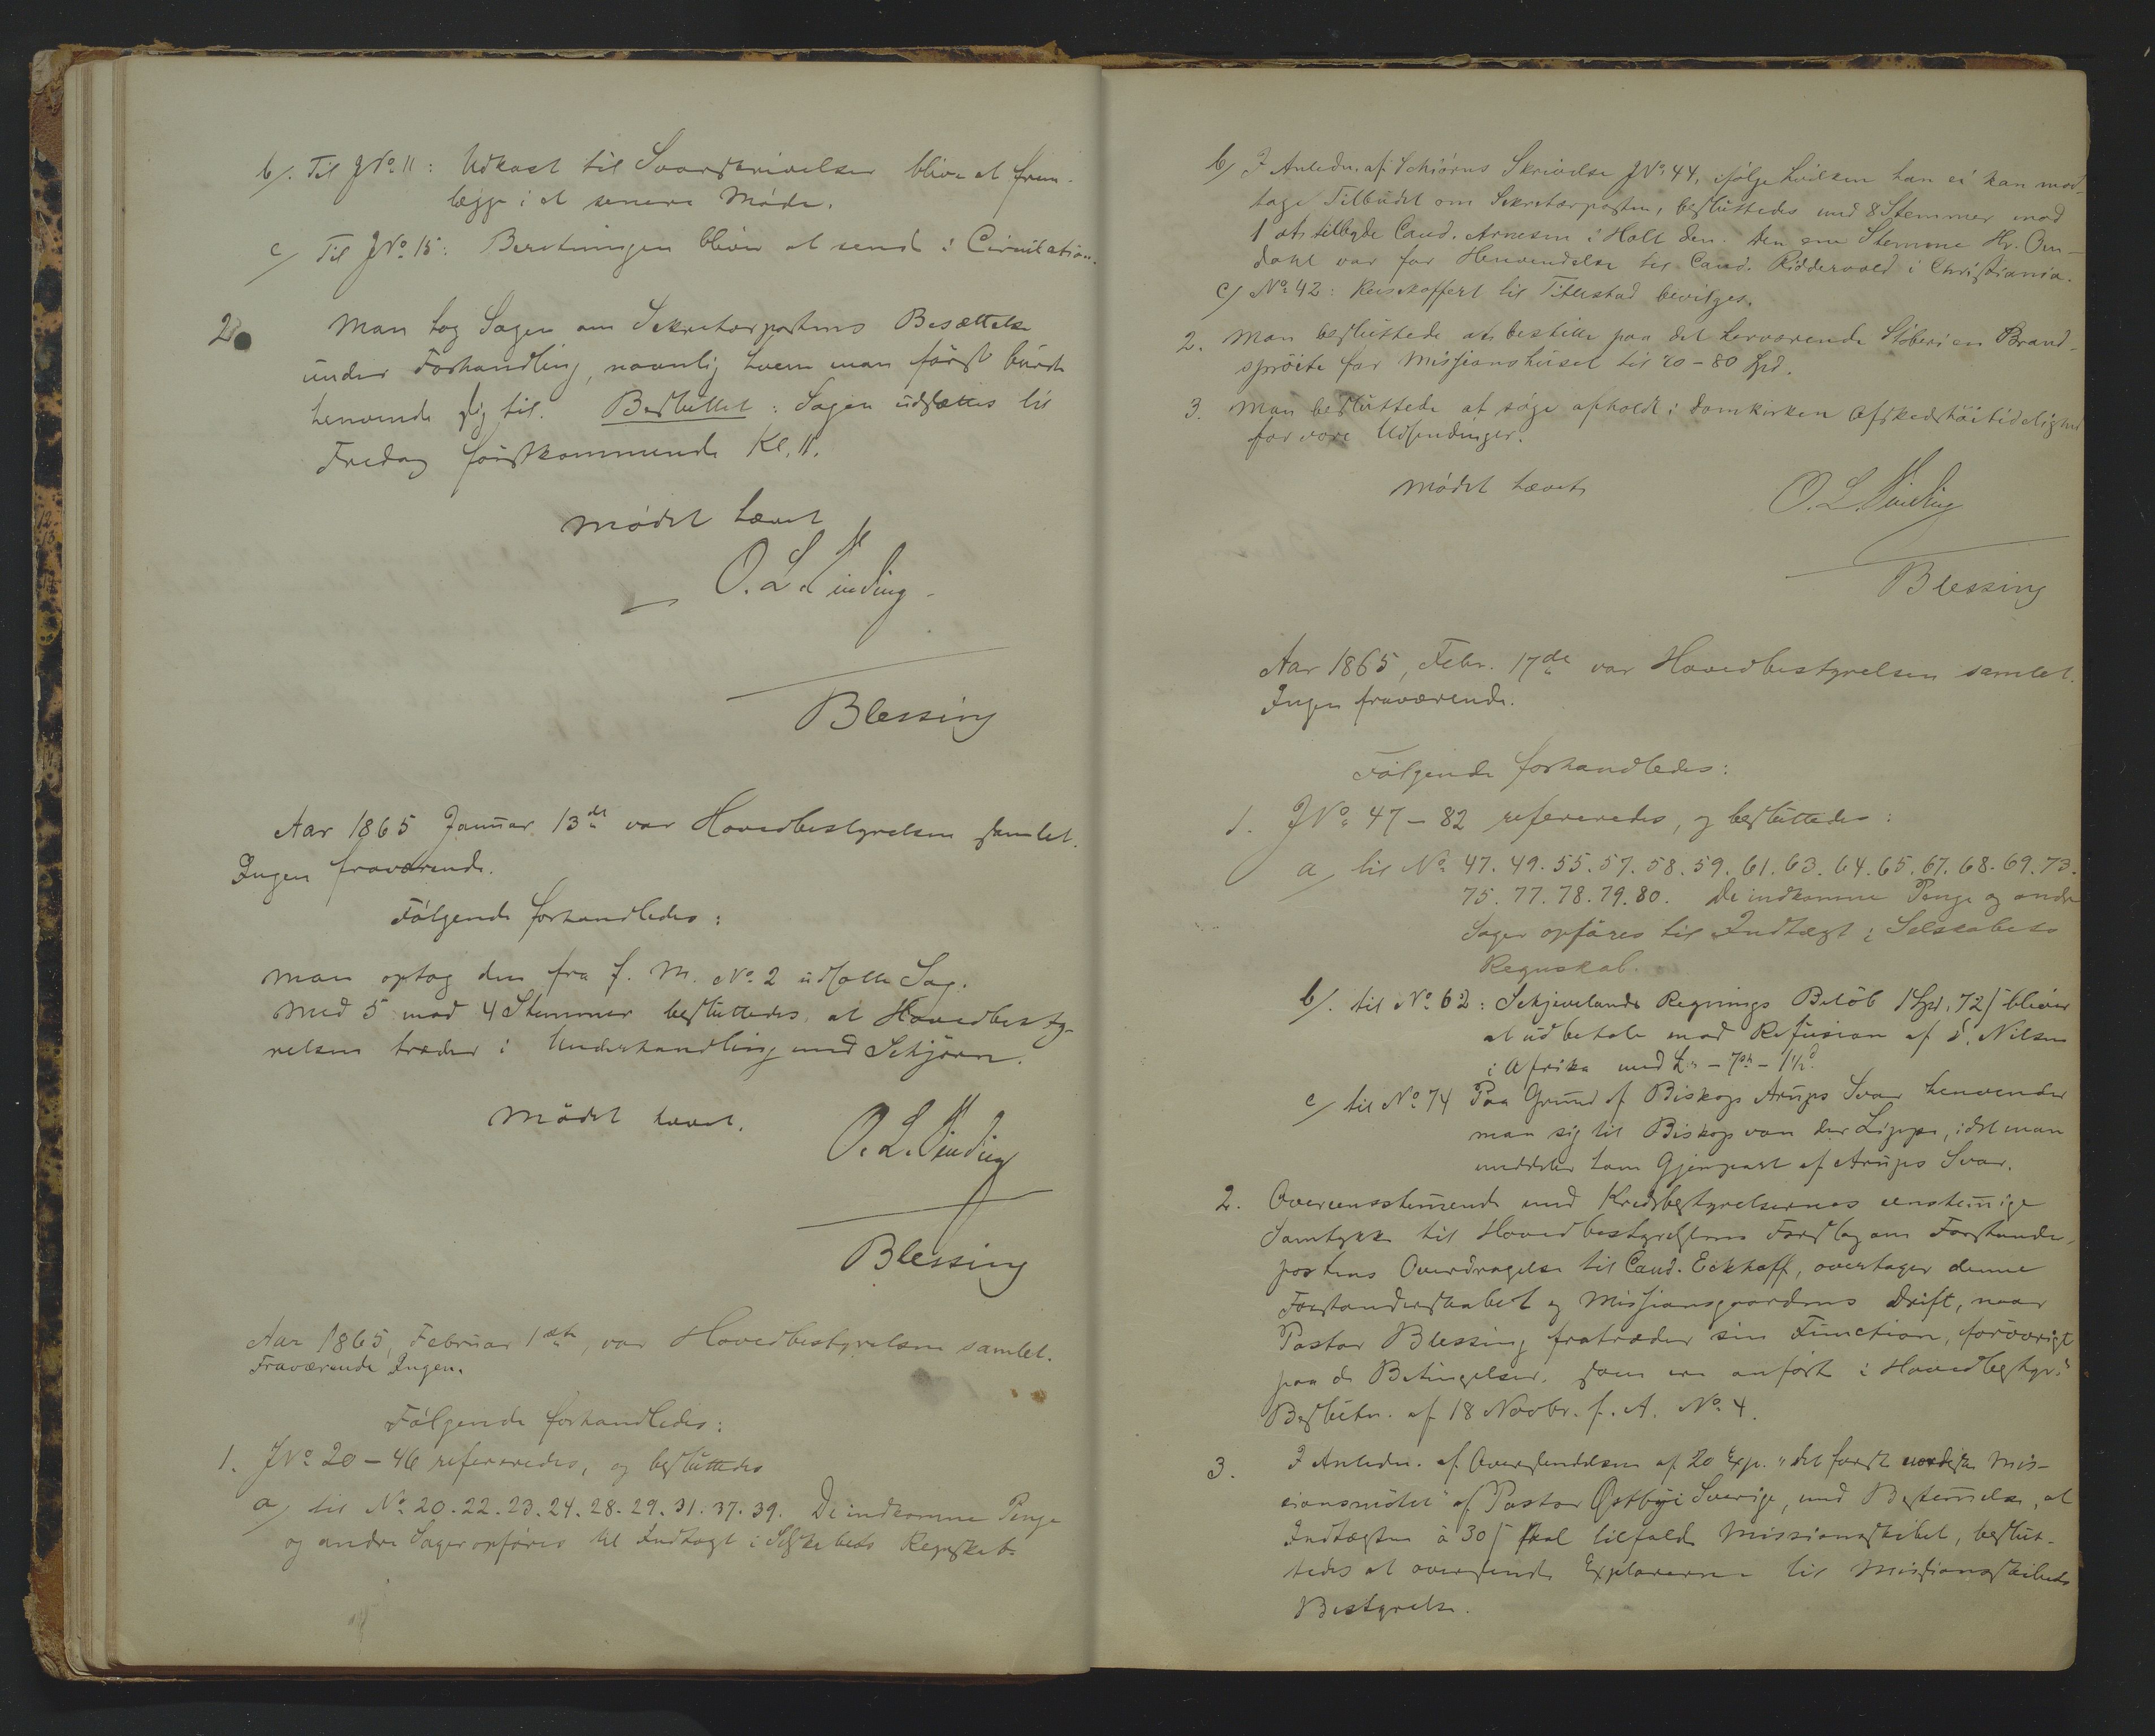 b/. Til JNo 11: Udkast til Svarskrivelser blive at frem-
lægge i et senere Møde.
c/ Til JNo 15: Beretningen bliver at sende i Circulation.
2. Man tog Sagen om Sekretærpostens Besættelse
under Forhandling, navnlig hvem man først burde
henvende sig til. Besluttet: Sagen udsættes til
Fredag førstkommende Kl. 11.
Mødet hævet
O. L. Sinding
Blessing
Aar 1865 Januar 13de var Hovedbestyrelsen samlet.
Ingen fraværende.
Følgende forhandledes:
Man optog den fra f. M. No 2 udsatte Sag.
Med 5 mod 4 Stemmer besluttedes, at Hovedbesty-
relsen træder i Underhandling med Schjørn.
Mødet hævet.
O. L. Sinding
Blessing
Aar 1865, Februar 1ste, var Hovedbestyrelsen samlet.
Fraværende Ingen.
Følgende forhandledes:
1. JNo 20-46 refereredes, og besluttedes
a/ til No 20. 22. 23. 24. 28. 29. 31. 37. 39. De indkomne Penge
og andre Sager opføres til Indtægt i Selskabets Regnskab.
b/ I Anledn. af Schiørns Skrivelse JNo 44, ifølge hvilken han ei kan mod-
tage Tilbudet om Sekretærposten, besluttedes med 8 Stemmer mod
1 at tilbyde Cand. Arnesen i Holt den. Den ene Stemme Hr. Om-
dahl var for Henvendelse til Cand. Riddervold i Christiania.
c/ No 42: Reisekoffert til Titlestad bevilges.
2. Man besluttede at bestille paa det herværende Støberi en Brand-
sprøite for Missionshuset til 70-80 Spd.
3. Man besluttede at søge afholdt i Domkirken Afskedshøitidelighed
for vore Udsendinger.
Mødet hævet
O. L. Sinding
Blessing
Aar 1865, Febr. 17de var Hovedbestyrelsen samlet.
Ingen fraværende.
Følgende forhandledes:
1. JNo 47-82 refereredes, og besluttedes:
a/ til No 47. 49. 55. 57. 58. 59. 61. 63. 64. 65. 67. 68. 69. 73.
75. 77. 78. 79. 80. De indkomne Penge og andre
Sager opføres til Indtægt i Selskabets
Regnskab.
b/. til No 62: Schjevelands Regnings Beløb 1 Spd. 72 ß bliver
at udbetale mod Refusion af Nilsen
i Afrika med £ " - 7sh - 1 1/2d
c/ til No 74 Paa Grund af Biskop Arups Svar henvender
man sig til Biskop von der Lippe, idet man
meddeler ham Gjenpart af Arups Svar.
2. Overensstemende med Kredsbestyrelsernes enstemige
Samtykke til Hovedbestyrelsens Forslag om Forstander-
postens Overdragelse til Cand. Eckhoff, overtager denne
Forstanderskabet og Missionsgaardens Drift, naar
Pastor Blessing fratræder sin Function, forøvrigt
paa de Betingelser, som ere anførte i Hovedbestyr.s
Beslutn. af 18 Novbr. f. A. No 4.
3. I Anledn. af Oversendelsen af 20 Exp. "det første nordiske Mis-
sionsmøde" af Pastor Østbye i Sverige, med Bestemelse, at
Indtægten à 30 ß skal tilfalde Missionsskibet, beslut-
tedes at oversende Explarerne til Missionsskibets
Bestyrelse.